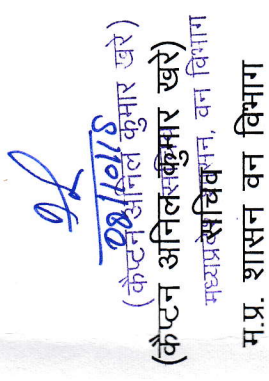 08/10/18
(कैप्टन अनिल कुमार खरे)
(कैप्टन अनिल कुमार खरे)
सचिव
मध्यप्रदेश शासन, वन विभाग
म.प्र. शासन वन विभाग